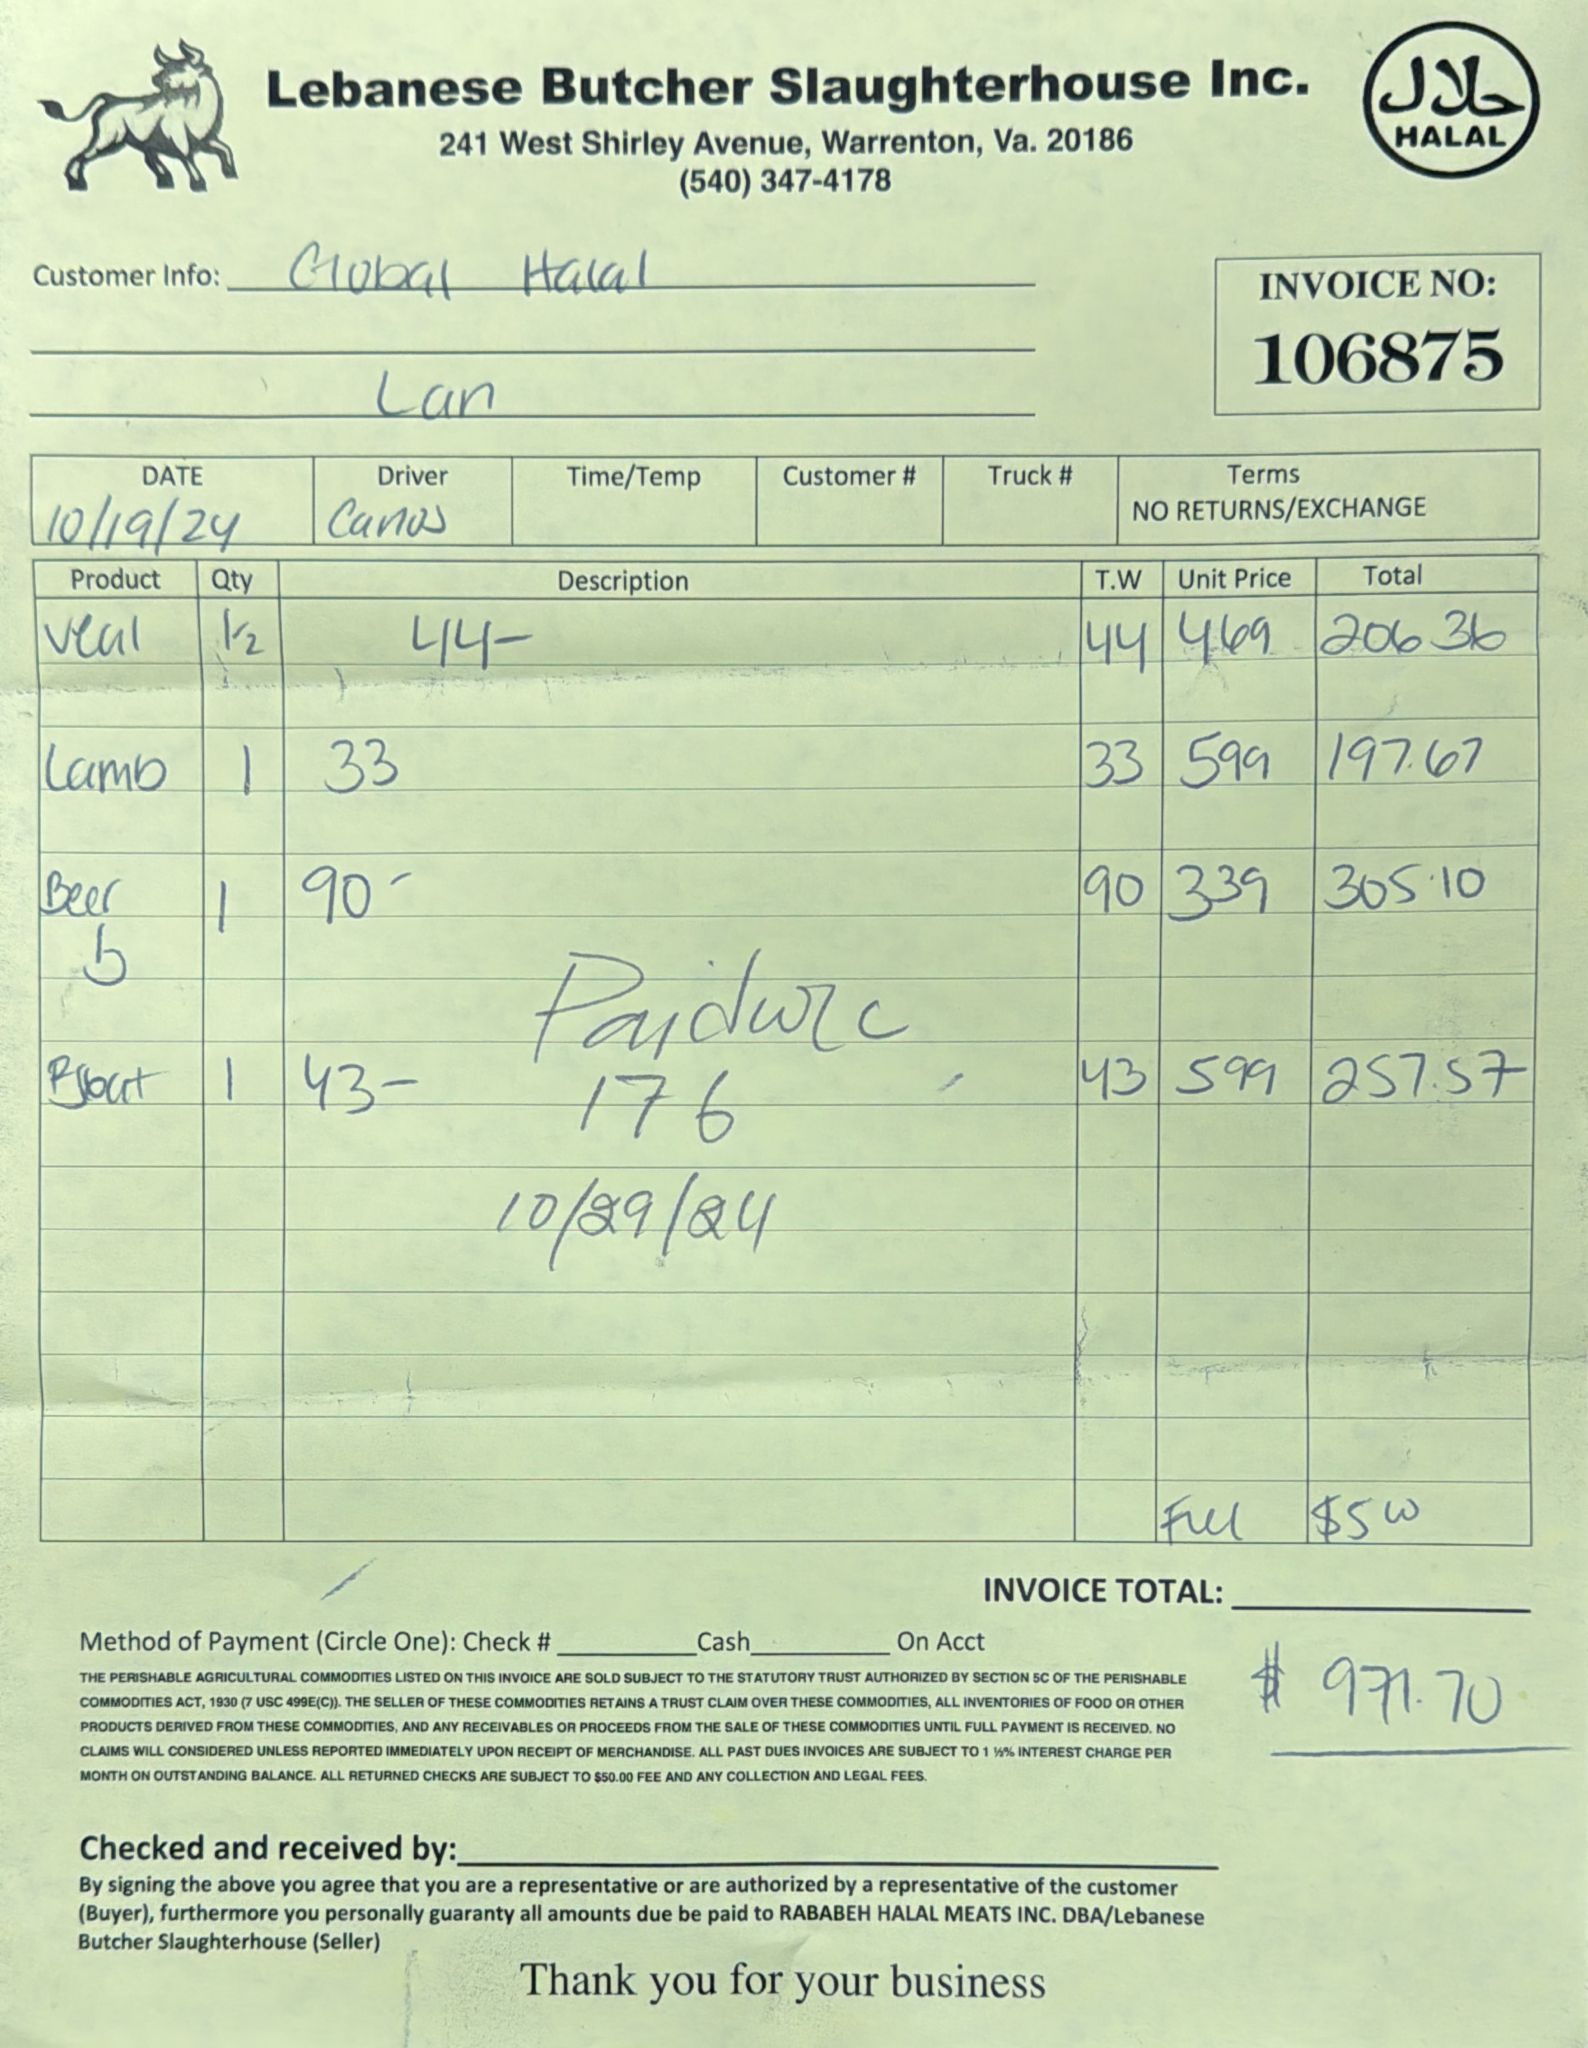 Lebanese Butcher Slaughterhouse Inc.
241 West Shirley Avenue, Warrenton, Va. 20186
(540) 347-4178
حلال
HALAL
Customer Info: Global Halal
Lan
INVOICE NO:
106875
DATE Driver Time/Temp Customer # Truck # Terms
10/19/24 NO RETURNS/EXCHANGE
Product Qty Description T.W Unit Price Total
Veal 1/2 44- 44 469 206 36
Lamb 1 33 33 599 197.67
1 90- 90 339 305.10
b
Paid
1 43- 43 599 257.57
176
10/29/24
$5 00
INVOICE TOTAL:
$ 971.70
Method of Payment (Circle One): Check # Cash On Acct
THE PERISHABLE AGRICULTURAL COMMODITIES LISTED ON THIS INVOICE ARE SOLD SUBJECT TO THE STATUTORY TRUST AUTHORIZED BY SECTION 5C OF THE PERISHABLE
COMMODITIES ACT, 1930 (7 USC 499E(C)). THE SELLER OF THESE COMMODITIES RETAINS A TRUST CLAIM OVER THESE COMMODITIES, ALL INVENTORIES OF FOOD OR OTHER
PRODUCTS DERIVED FROM THESE COMMODITIES, AND ANY RECEIVABLES OR PROCEEDS FROM THE SALE OF THESE COMMODITIES UNTIL FULL PAYMENT IS RECEIVED. NO
CLAIMS WILL CONSIDERED UNLESS REPORTED IMMEDIATELY UPON RECEIPT OF MERCHANDISE. ALL PAST DUES INVOICES ARE SUBJECT TO 1 ½% INTEREST CHARGE PER
MONTH ON OUTSTANDING BALANCE. ALL RETURNED CHECKS ARE SUBJECT TO $50.00 FEE AND ANY COLLECTION AND LEGAL FEES.
Checked and received by:
By signing the above you agree that you are a representative or are authorized by a representative of the customer
(Buyer), furthermore you personally guaranty all amounts due be paid to RABABEH HALAL MEATS INC. DBA/Lebanese
Butcher Slaughterhouse (Seller)
Thank you for your business